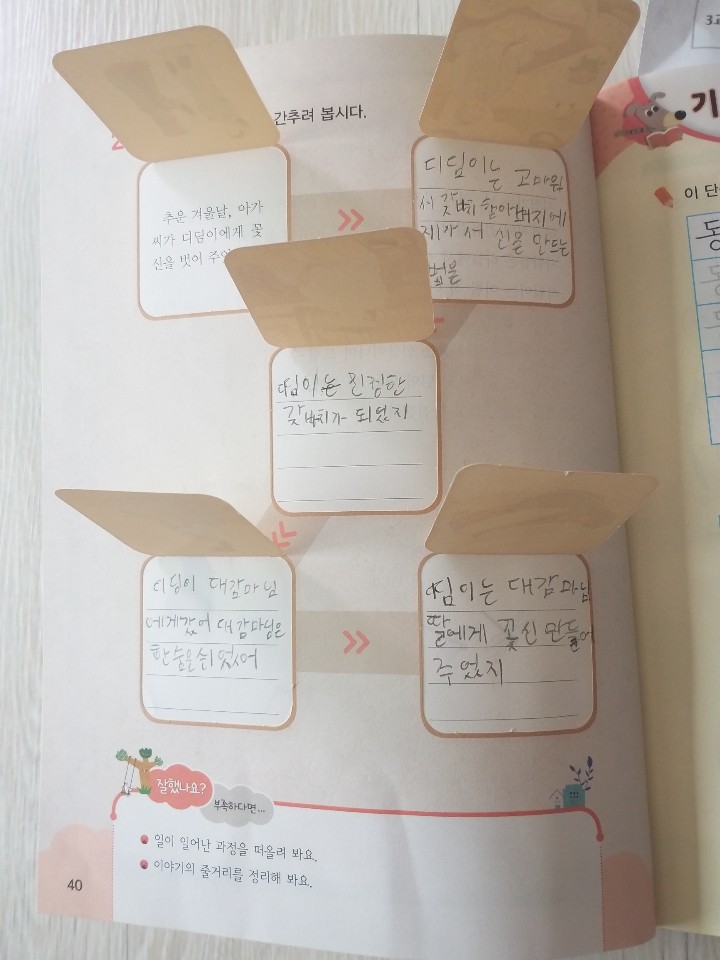 간추려 봅시다.
추운 겨울날, 아가
씨가 디딤이에게 꽃
신을 벗어 주었
디딤이는 고마워
서 갖바치 할아버지에
제가 서 신을 만드는
법을
딤이는 진정한
갖바치가 되었지
디딤이 대감마님
에게갔어 대감마님은
한숨을쉬었어
딤이는 대감마님
딸에게 꽃신 만들어
주었지
잘했나요?
부족하다면...
일이 일어난 과정을 떠올려 봐요.
이야기의 줄거리를 정리해 봐요.
40
기
이 단
동